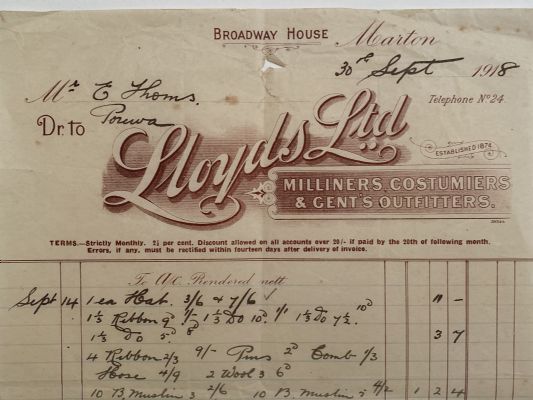 BROADWAY HOUSE
Marton
30th Sept 1918
Telephone No 24.
Mr E Thoms.
Porewa
Dr. to
Lloyds Ltd
ESTABLISHED 1874
MILLINERS, COSTUMIERS
& GENT'S OUTFITTERS.
TERMS.—Strictly Monthly. 2½ per cent. Discount allowed on all accounts over 20/- if paid by the 20th of following month.
Errors, if any, must be rectified within fourteen days after delivery of invoice.
To A/c. Rendered nett
Sept 14 1 ea Hat. 3/6 & 7/6 ✓ 11 -
1⅓ Ribbon 9d 1/- 1⅓ Do 10d 1/1 1⅓ Do 7½. 10d
1⅓ Do 5d 8d 3 7
4 Ribbon 2/3 9/- Pins 2d Comb 1/3
Hose 4/9 2 Wool 3 6d
10 B. Muslin 3 2/6 10 B. Muslin 5 4/2 1 2 4